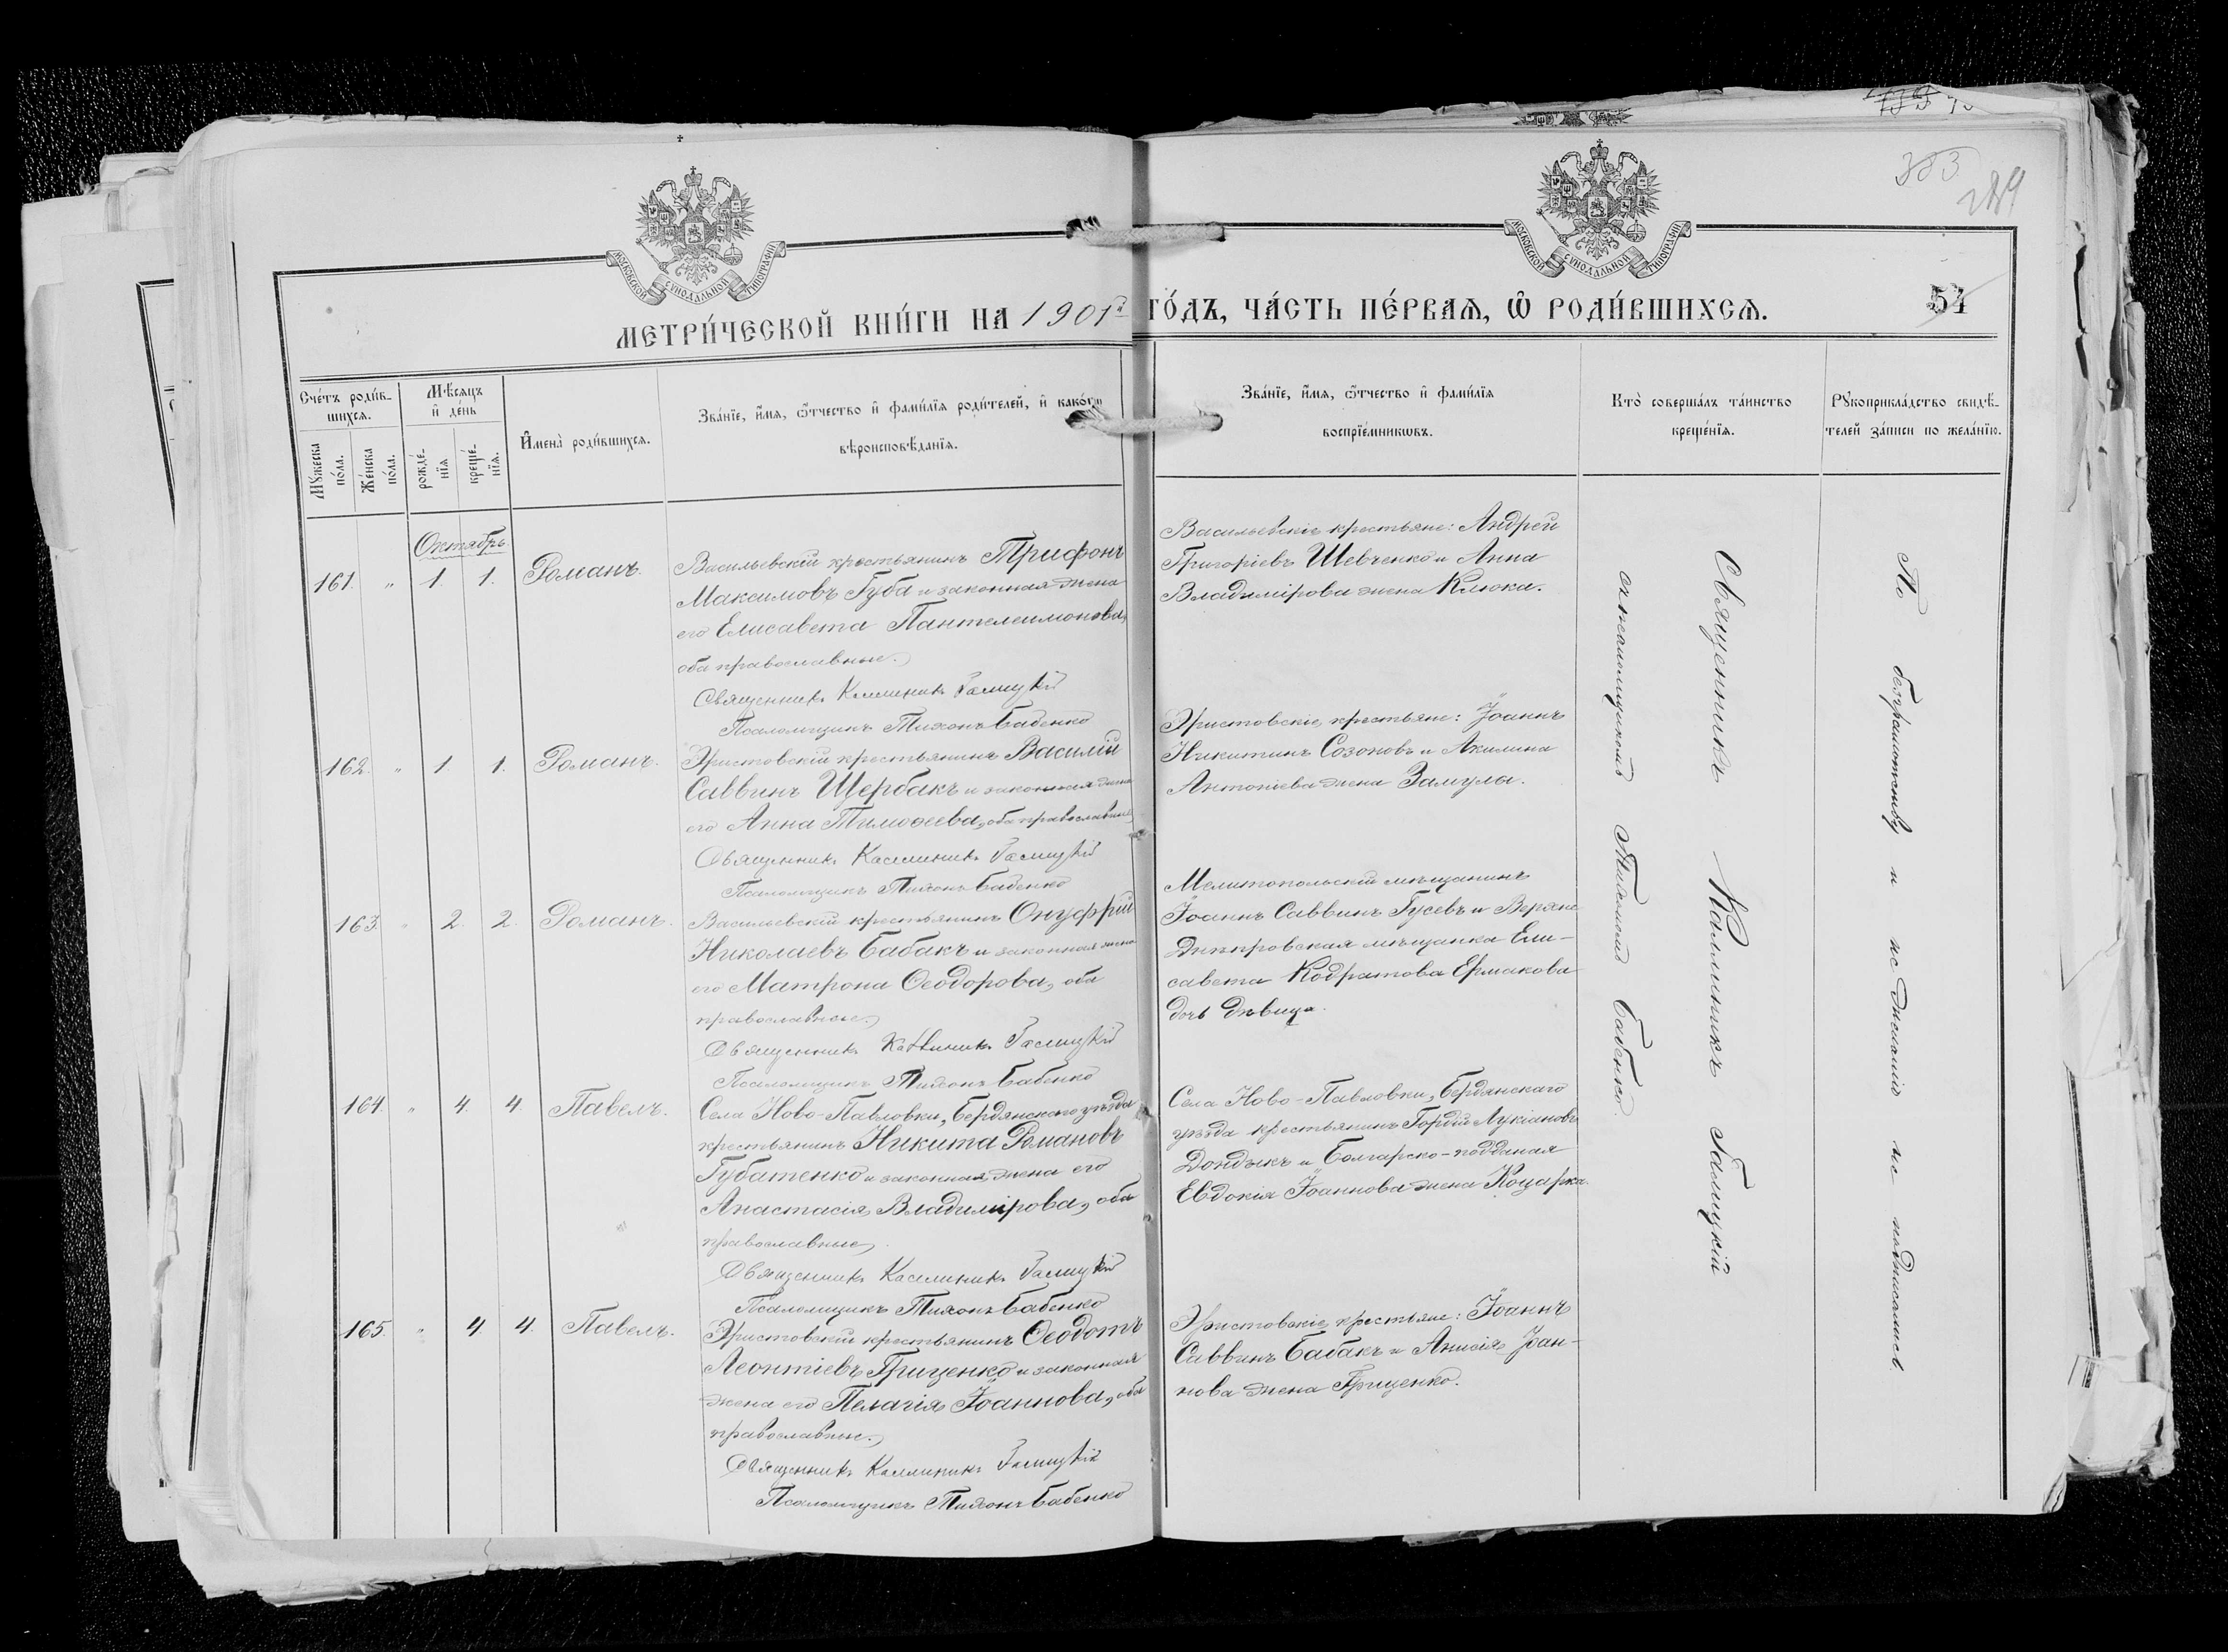 383
289
МОСКОВСКОЙ СѴНОДАЛЬНОЙ ТИПОГРАФІИ
МОСКОВСКОЙ СѴНОДАЛЬНОЙ ТИПОГРАФІИ
МЕТРИ́ЧЕСКОЙ КНИ́ГИ НА 1901й ГО́ДЪ, ЧА́СТЬ ПЕ́РВАѦ, Ѽ РОДИ́ВШИХСѦ.
54
Сче́тъ роди́в-
шихсѧ.
Мѣ́сѧцъ
и҆ де́нь
Мꙋ́жеска
по́ла.
Же́нска
по́ла.
рожде́-
нїѧ
креще́-
нїѧ.
И҆мена̀ роди́вшихсѧ.
Зва́нїе, и҆́мѧ, ѻ҆́тчество и҆ фами́лїѧ роди́телей, и҆ како́гѡ
вѣроисповѣ́данїѧ.
Зва́нїе, и҆́мѧ, ѻ҆́тчество и҆ фами́лїѧ
воспрїе́мникѡвъ.
Кто̀ соверша́лъ та́инство
креще́нїѧ.
Рꙋкоприкла́дство свидѣ́-
телей за́писи по жела́нїю.
Октябрь
161. " 1. 1. Романъ.
Васильевскій крестьянинъ Трифонъ
Максимовъ Губа и законная жена
его Елисавета Пантелеимонова,
оба православные.
Священникъ Каллиникъ Галицкій
Псаломщикъ Тихонъ Бабенко
Васильевскіе крестьяне: Андрей
Григоріевъ Шевченко и Анна
Владимірова жена Клюка.
162. " 1. 1. Романъ.
Христовскій крестьянинъ Василій
Саввинъ Щербакъ и законная жена
его Анна Тимоѳеева, оба православные
Священникъ Каллиникъ Галицкій
Псаломщикъ Тихонъ Бабенко
Христовскіе крестьяне: Іоаннъ
Никитинъ Созоновъ и Акилина
Антоніева жена Замула.
163. " 2. 2. Романъ.
Васильевскій крестьянинъ Онуфрій
Николаевъ Бабакъ и законная жена
его Матрона Ѳеодорова, оба
православные.
Священникъ Каллиникъ Галицкій
Псаломщикъ Тихонъ Бабенко
Мелитопольскій мѣщанинъ
Іоаннъ Саввинъ Гусевъ и Верхне
Днѣпровская мѣщанка Ели-
савета Кодратова Ермакова
дочь дѣвица.
164. " 4. 4. Павелъ.
Села Ново-Павловки, Бердянскаго уѣзда
крестьянинъ Никита Романовъ
Губатенко и законная жена его
Анастасія Владимірова, оба
православные
Священникъ Каллиникъ Галицкій
Псаломщикъ Тихонъ Бабенко
Села Ново-Павловки, Бердянскаго
уѣзда крестьянинъ Гордій Лукіановъ
Дондыкъ и Болгарско-подданая
Евдокія Іоаннова жена Коцарка.
165. " 4. 4. Павелъ.
Христовскій крестьянинъ Ѳеодотъ
Леонтіевъ Гриценко и законная
жена его Пелагія Іоаннова, оба
православные.
Священникъ Каллиникъ Галицкій
Псаломщикъ Тихонъ Бабенко
Христовскіе крестьяне: Іоаннъ
Саввинъ Бабакъ и Анисія Іоан-
нова жена Гриценко.
Священникъ Каллиникъ Галицкій
съ псаломщикомъ Тихономъ Бабенко.
По безграмотству и не желанію не подписались.